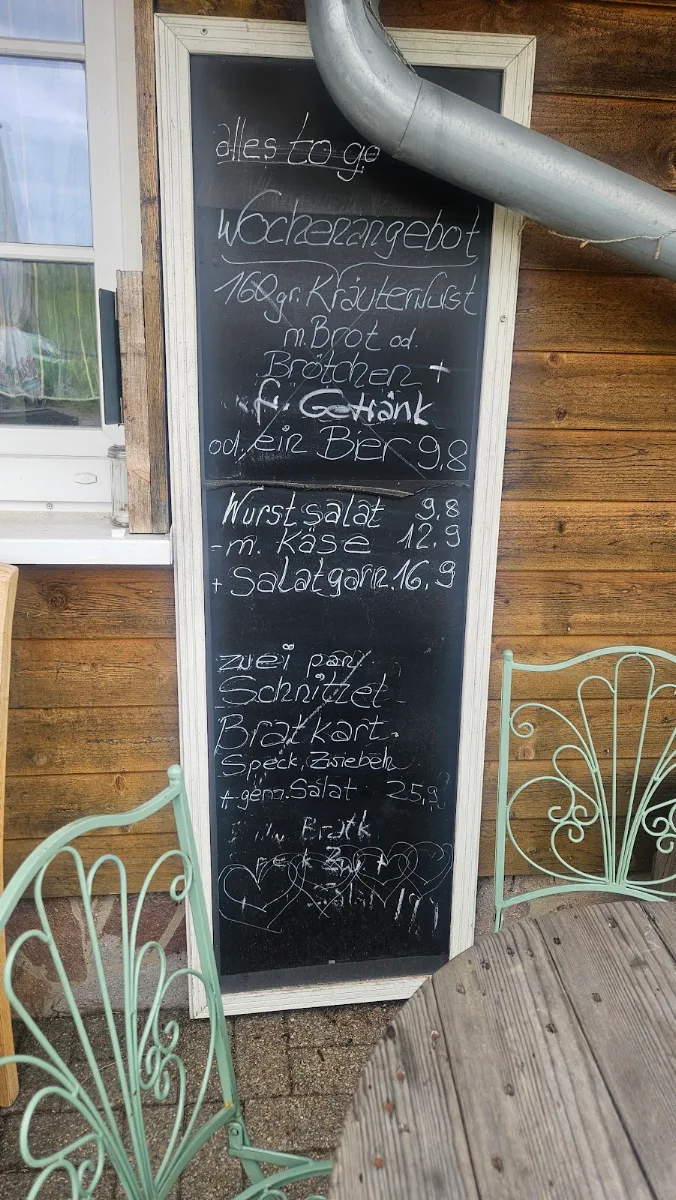 alles to go
Wochenangebot
160gr. Kräuterwurst
m. Brot od.
Brötchen +
fr. Getränk
od. ein Bier 9,8
Wurstsalat 9,8
- m. Käse 12,9
+ Salatgarn. 16,9
zwei pan.
Schnitzel
Bratkart.
Speck, Zwiebeln
+ gem. Salat 25,9
Bratk
Zw +
Salat